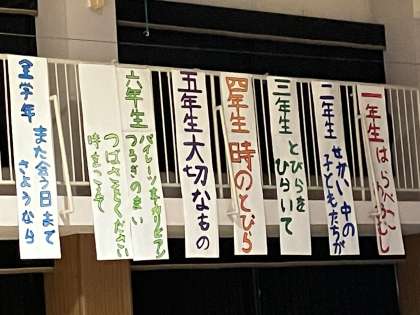 一年生 はらぺこむし
二年生 せかい中の
子どもたちが
三年生 とびらを
ひらいて
四年生 時のとびら
五年生 大切なもの
六年生 パイレーツオブカリビアン
つるぎのまい
つばさをください
時をこえて
全学年 また会う日まで
さようなら